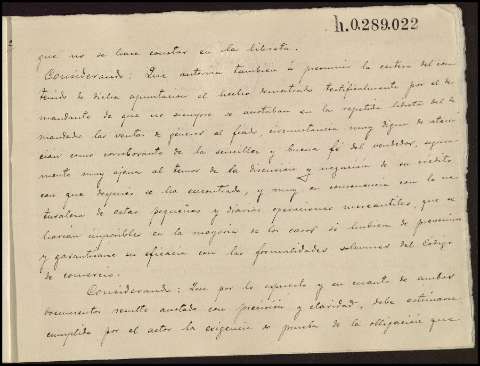 h.0.289.022
que no se hace constar en la libreta.
Considerando: Que autoriza tambien á presumir la certeza del con-
tenido de dicha apuntacion el hecho demostrado testificalmente por el de-
mandante de que no siempre se anotaban en la repetida libreta del de-
mandado las ventas de géneros al fiado, circunstancia muy digna de aten-
cion como corroborante de la sencillez y buena fé del vendedor, segura-
mente muy ajena al temor de la discusion y negacion de su crédito
con que despues se ha encontrado, y muy en consonancia con la na-
turaleza de estas pequeñas y diarias operaciones mercantiles, que se
harian imposibles en la mayoria de los casos si hubiera de prevenirse
y garantirse su eficacia con las formalidades solemnes del Código
de comercio.
Considerando: Que por lo expuesto y en cuanto de ambos
documentos resulte anotado con precision y claridad, debe estimarse
cumplida por el actor la exigencia de prueba de la obligacion que